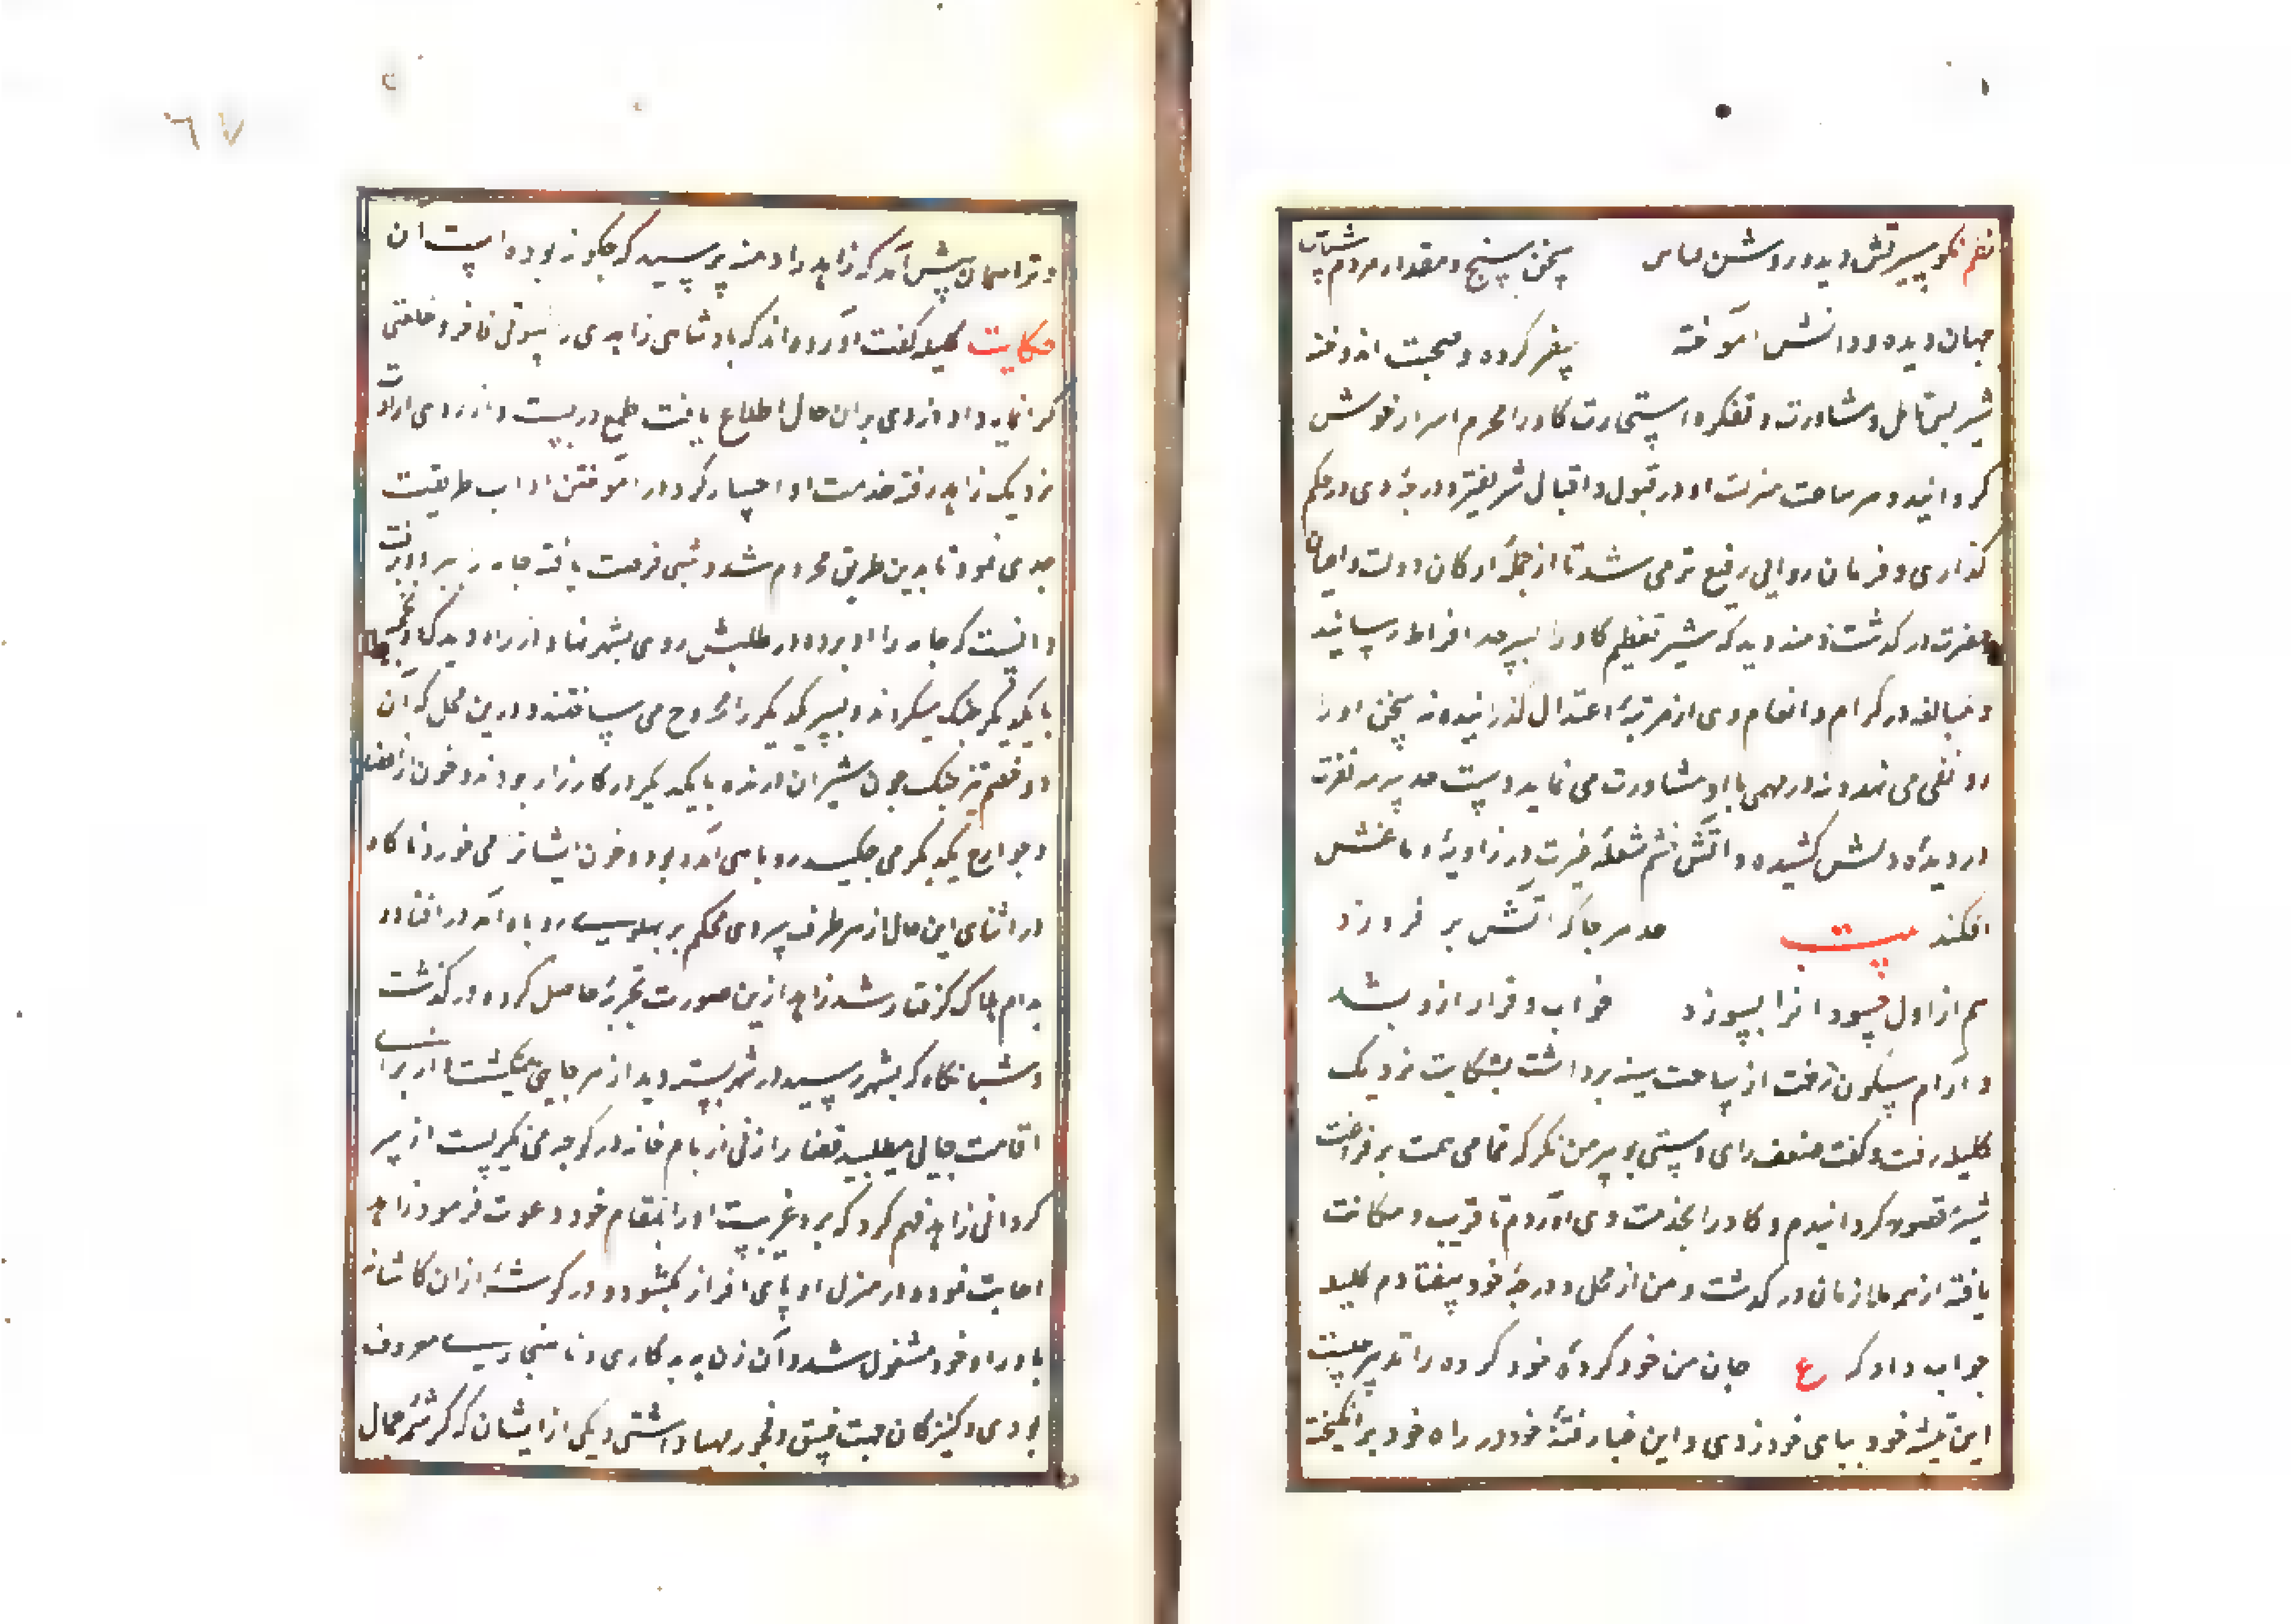 نظم نکو سیرتش دید و روشن قیاس سخن سنج و مقدار مردم شناس
جهان دیده و دانش آموخته سفر کرده و صحبت اندوخته
شیر پس تامل و مشاورت و تفکر و استخارت کاو را محرم اسرار خویش
کردانید و هر ساعت منزلت او در قبول و اقبال شریفتر و درجهٔ وی در حکم
کذاری و فرمان روایی رفیع تر می شد تا از جملهٔ ارکان دولت و اعیان
حضرت در کذشت دمنه دید که شیر تعظیم کاو را بسرحد افراط رسانید
و مبالغه در اکرام و انعام وی از مرتبهٔ اعتدال کذرانید و نه سخن او را
رو نفی می نهد و نه در مهمی با او مشاورت می نماید دست حسد سرمه نفرت
در دیدهٔ دلش کشیده و آتش خشم شعلهٔ غیرت در زاویهٔ دماغش
افکند بیت حسد هر جا که آتش بر فروزد
هم از اول حسود انرا بسوزد خواب و قرار ازو بشد
و آرام و سکون رخت از ساحت سینه برداشت بشکایت نزدیک
کلیله رفت و کفت ضعف رای و سستی تدبیر من نکر که تمامی همت بر فراغت
شیر مقصور کردانیدم و کاو را بخدمت وی آوردم تا قربت و مکانت
یافته از همه ملازمان در کذشت و من از محل و درجهٔ خود بیفتادم کلیله
جواب داد که ع جان من خود کردهٔ خود کرده را تدبیر چیست
این تیشه خود بپای خود زدی و این غبار فتنهٔ خود در راه خود برانکیخته
و ترا همان پیش آمد که زاهد را دمنه پرسید که چکونه بوده است آن
حکایت کلیله کفت آورده اند که پادشاهی زاهدی را کسوتی فاخر و خلعتی
کرانمایه داد دزدی بران حال اطلاع یافت طمع در بست و از روی ارادت
نزدیک زاهد رفته خدمت او اختیار کرد و در آموختن آداب طریقت
جدی نمود تا بدین طریق محرم شد و شبی فرصت یافته جامه را ببرد و برفت
دانست که جامه را او برده در طلبش روی بشهر نهاد از راه دید که دو نخجیر
با یکدیکر جنک میکردند و بسر یکدیکر را مجروح می ساختند و درین محل که آن
دو خصم تیز جنک چون شیران درنده با یکدیکر در کارزار بودند و خون از اعضا
و جوارح یکدیکر می چکید روباهی آمده بود و خون ایشانرا می خورد ناکاه
در اثنای این حال از هر طرف سروی محکم بر پهلوی روباه آمد در افتاد و
بدام هلاک کرفتار شد زاهد ازین صورت تجربهٔ حاصل کرده در کذشت
و شبانکاه که بشهر رسید در شهر بسته دید از هر جای میکشت و از برای
اقامت جایی میطلبید قضا را زنی از بام خانه در کوچه می نکریست از سر
کردانی زاهد فهم کرد که مرد غریبست او را بمقام خود دعوت فرمود زاهد
اجابت نمود و در منزل او پای افزار بکشود و در کوشهٔ ازان کاشانه
باوراد خود مشغول شد و آن زن به بدکاری و نا هنجاری معروف
بودی و کنیزکان جهت فسق و فجور مهیا داشتی و یکی از ایشان که کرشمهٔ جمال
٦٧